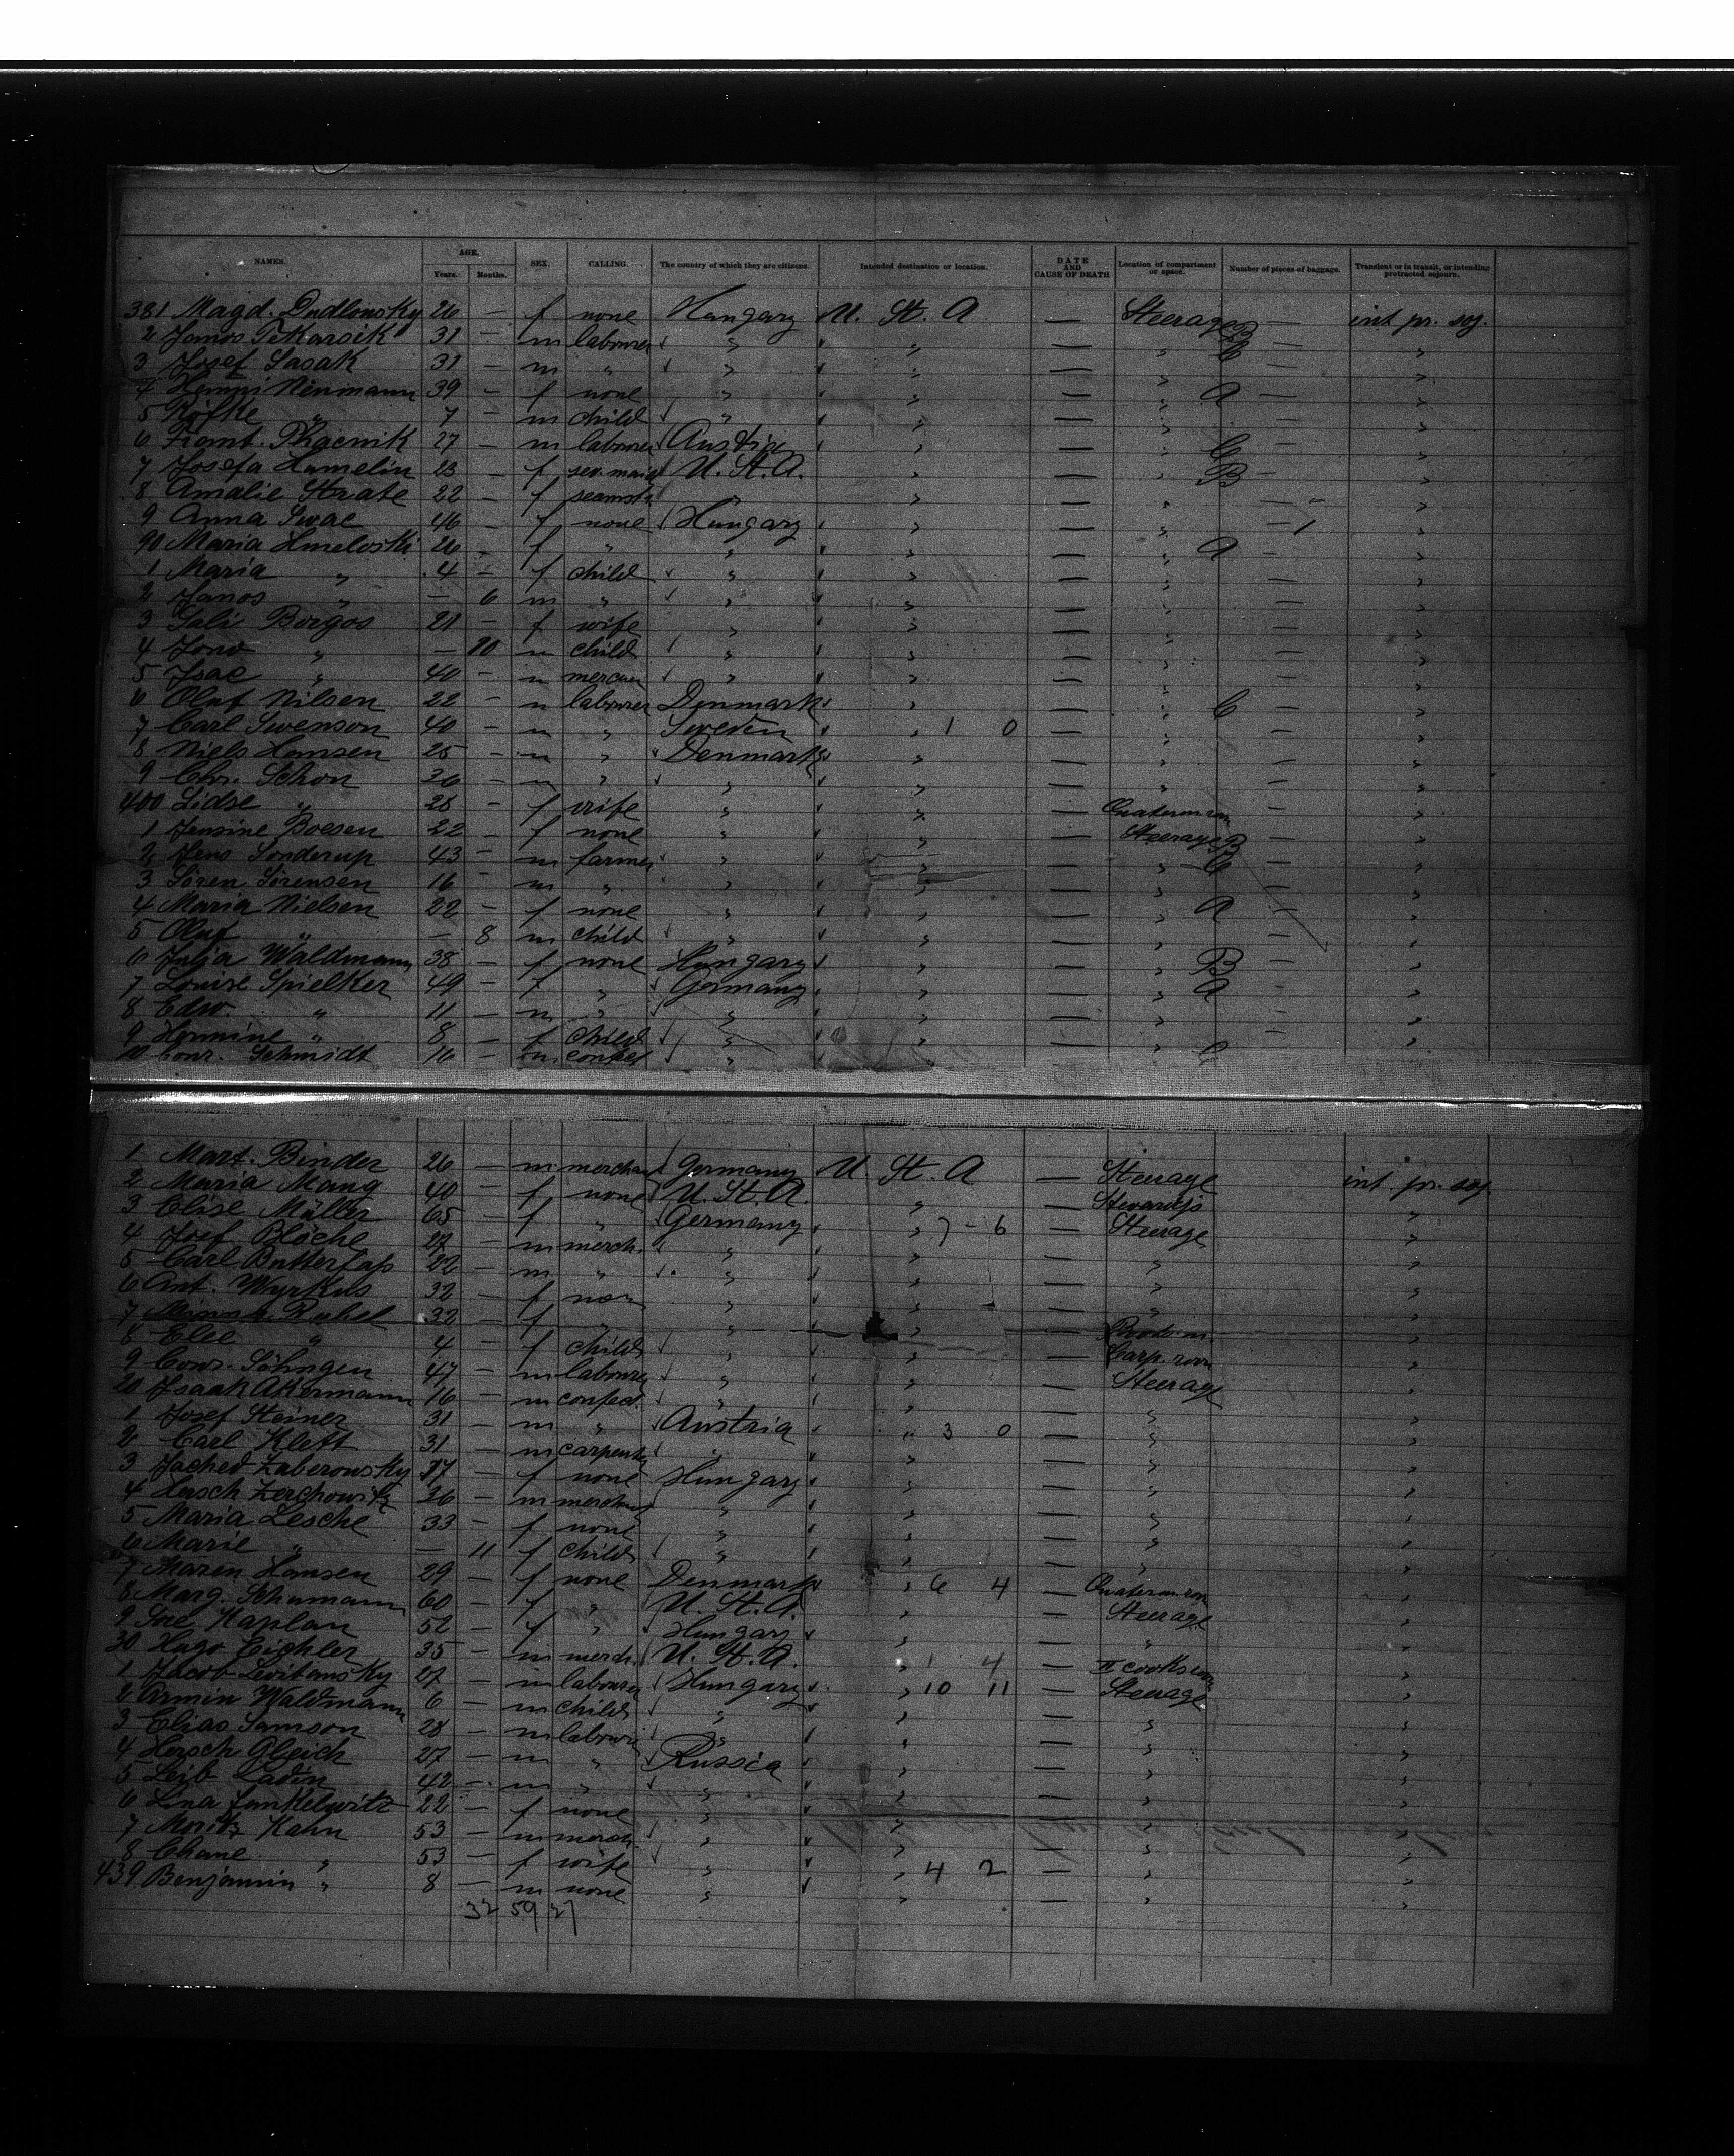 NAMES. AGE. SEX. CALLING. The country of which they are citizens. Intended destination or location. DATE AND CAUSE OF DEATH Location of compartment or space. Number of pieces of baggage. Transient or in transit, or intending protracted sojourn.
Years. Months.
381 Magd. Dudlowsky 26 — f none Hungary U. St. A — Steerage B — int pr. soj.
2 Janos Tekarsik 31 — m labourer " " — " C — "
3 Josef Sasak 31 — m " " " — " — "
4 Neumann 39 — f none " " — " A — "
5 " 7 — m child " " — " — "
6 27 — m labourer Austria " — " C — "
7 Josefa Hamelin 23 — f ser. maid U. St. A. " — " B — "
8 Amalie Straate 22 — f seamstr. " " — " — "
9 Anna 46 — f none Hungary " — " — 1 "
90 Maria Hmeloski 26 — f " " " — " A — "
1 Maria " 4 — f child " " — " — "
2 Janos " — 6 m " " " — " — "
3 Sali Borgos 21 — f wife " " — " — "
4 " — 10 m child " " — " — "
5 Isac " 40 — m " " — " — "
6 Oluf Nilsen 22 — m labourer Denmark " — " C — "
7 Carl Swenson 40 — m " Sweden " 1 0 — " — "
8 Niels Hansen 25 — m " Denmark " — " — "
9 Chr. Schon 36 — m " " " — " — "
400 Lidse " 28 — f wife " " — — "
1 Jensine Boesen 22 — f none " " — Steerage B — "
2 Jens Sonderup 43 — m farmer " " — " C — "
3 Sören Sörensen 16 — m " " " — " — "
4 Maria Nielsen 22 — f none " " — " A — "
5 Oluf " — 8 m child " " — " — "
6 Julia Waldmann 38 — f none Hungary " — " B — "
7 Louise Spielker 49 — f " Germany " — " A — "
8 Edw. " 11 — m " " " — " — "
9 Hermine " 8 — f child " " — " — "
10 Conr. Schmidt 16 — m confect " — " C "
1 Mart. Binder 26 — m merchant Germany U. St. A — Steerage int. pr. soj.
2 Maria Mang 40 — f none U. St. A. " — "
3 Elise Müller 65 — f " Germany " 7 - 6 — Steerage "
4 Josef Blöche 27 — m merch. " " — " "
5 Carl Butterfass 22 — m " " " — " "
6 Ant. Wyrkus 32 — f none " " — " "
7 Ruhel 32 — f " " " — "
8 Else " 4 — f child " " — Carp. room "
9 Conr. Söhngen 47 — m labourer " " — Steerage "
20 Isaak Akermann 16 — m confect. " " — " "
1 Josef Steiner 31 — m " Austria " 3 0 — " "
2 Carl Klett 31 — m carpenter " " — " "
3 Zaberowsky 17 — f none Hungary " — " "
4 Hersch Zerchowitz 36 — m merchant " " — " "
5 Maria Lesche 33 — f none " " — " "
6 Marie " — 11 f child " " — " "
7 Maren Hansen 29 — f none Denmark " 6 4 — "
8 Marg. Schumann 60 — f " U. St. A. " — Steerage "
9 Kaplan 52 — f " Hungary " — " "
30 Hugo Eichler 35 — m merch. U. St. A. " 1 4 — II cooks room "
1 Jacob Levitansky 27 — m labourer Hungary " 10 11 — Steerage "
2 Armin Waldmann 6 — m child " " — " "
3 Elias Samson 28 — m labourer " " — " "
4 Hersch Gleich 27 — m " Russia " — " "
5 Leib Ladin 42 — m " " " — " "
6 Lina Jankelowitz 22 — f none " " — " "
7 Moritz Kahn 53 — m merch " " — " "
8 Chane " 53 — f wife " " 4 2 — " "
439 Benjamin " 8 — m none " " — " "
32 59 27